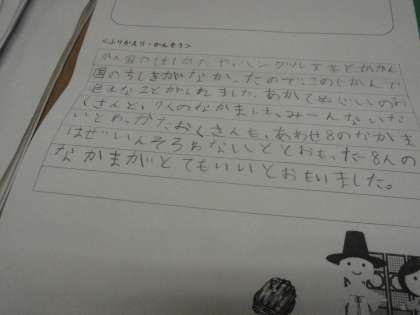 <ふりかえり・かんそう>
かん国のはしかた やハングル文字とかかん
国のちしきがなかったので、このじかんで
色んなことがしれました。あかてぬぐいのお
くさんと、7人のなかまは、みーんないな
いと わかった。おくさんも、あわせ8のなかま
はぜいんそろわないととおもった8人の
なかまがとてもいいとおもいました。